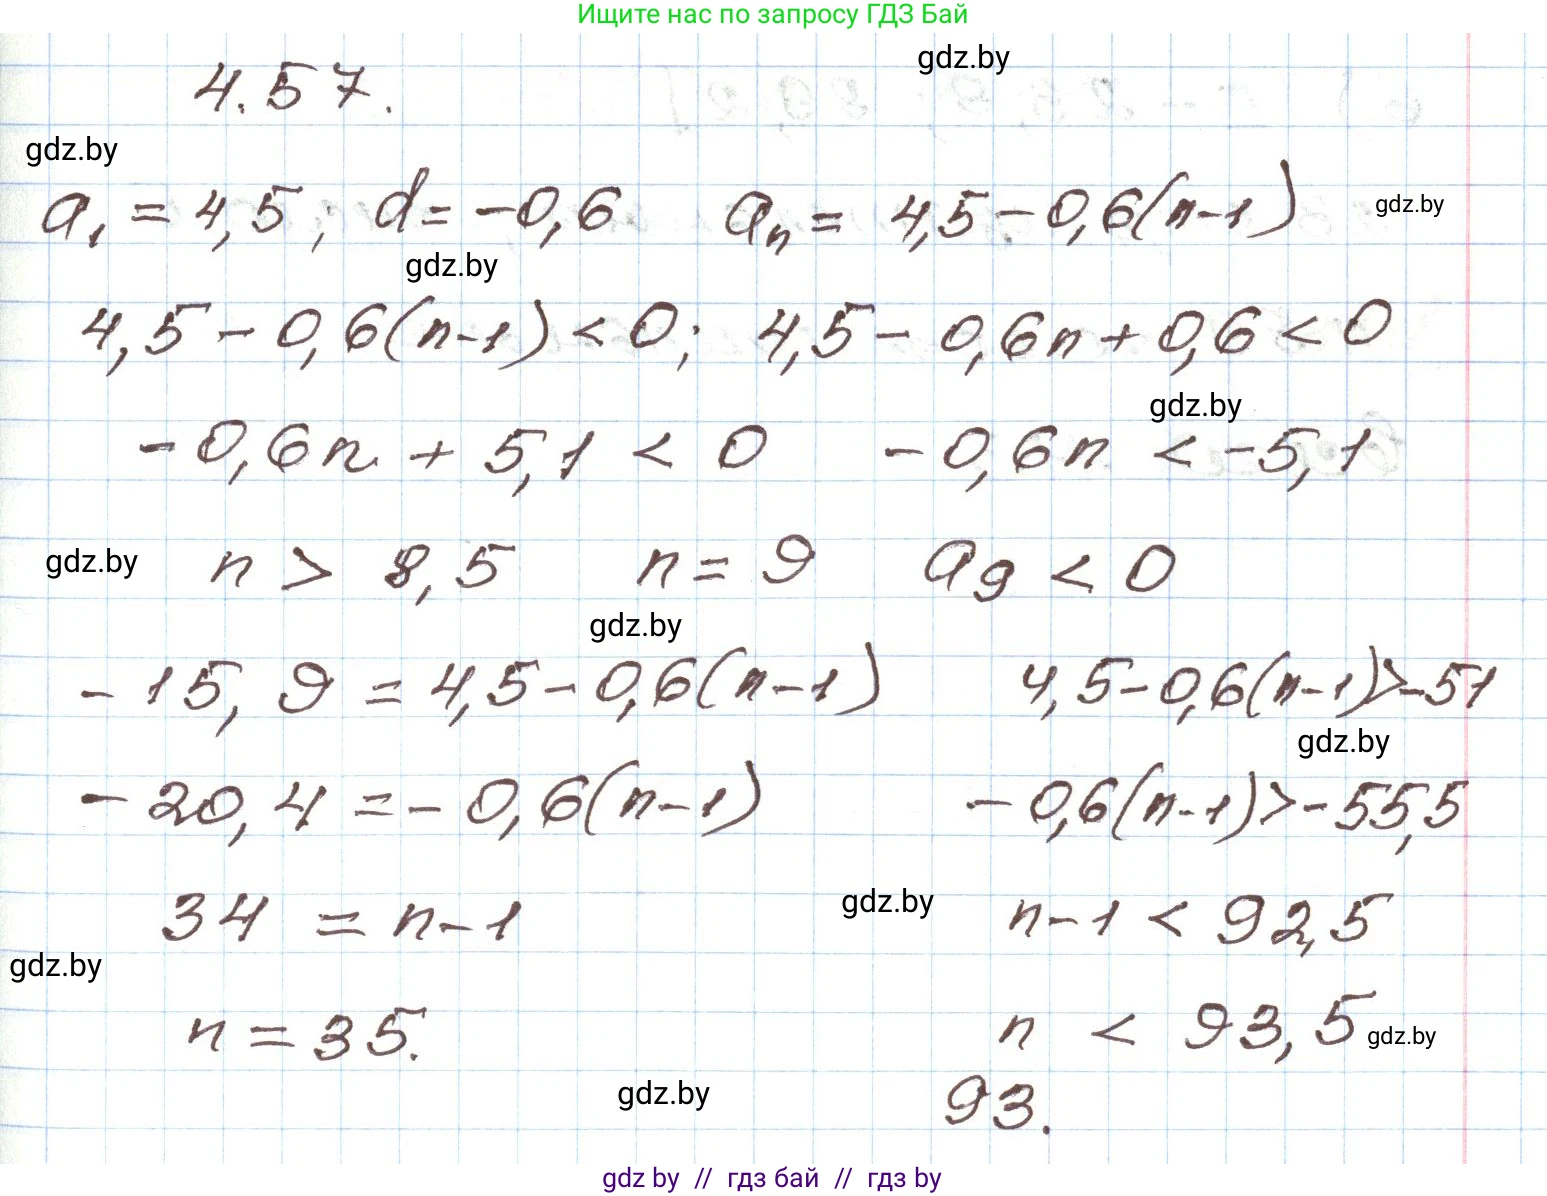 Ищите нас по запросу ГДЗ Бай
gdz.by
4.57.
gdz.by
a₁ = 4,5; d = -0,6 aₙ = 4,5 - 0,6(n-1)
gdz.by
gdz.by
4,5 - 0,6(n-1) < 0; 4,5 - 0,6n + 0,6 < 0
gdz.by
-0,6n + 5,1 < 0 -0,6n < -5,1
gdz.by
n > 8,5 n = 9 a₉ < 0
gdz.by
-15,9 = 4,5 - 0,6(n-1) 4,5 - 0,6(n-1) > -51
gdz.by
-20,4 = -0,6(n-1) -0,6(n-1) > -55,5
gdz.by
34 = n-1 n-1 < 92,5
gdz.by
n = 35. n < 93,5
gdz.by
gdz.by
93.
gdz by // гдз бай // гдз by